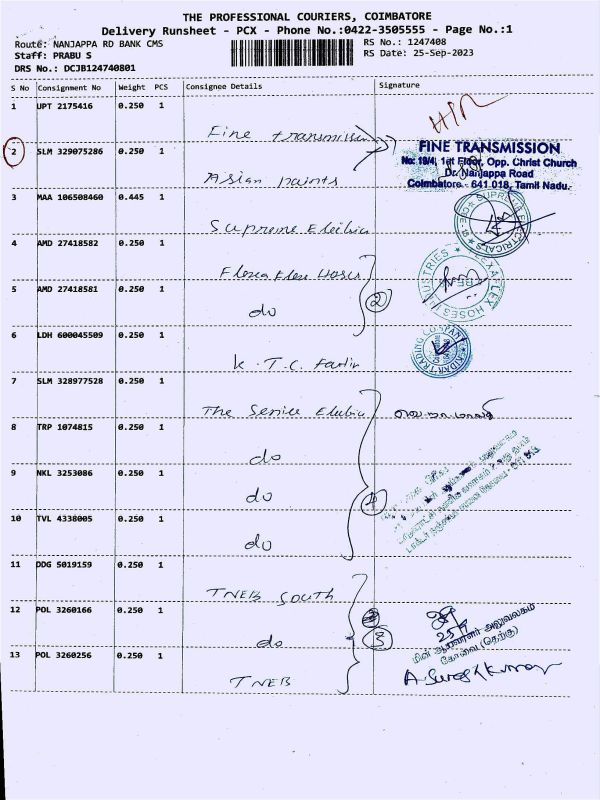 THE PROFESSIONAL COURIERS, COIMBATORE
Delivery Runsheet - PCX - Phone No.:0422-3505555 - Page No.:1
Route: NANJAPPA RD BANK CMS
RS No.: 1247408
Staff: PRABU S
RS Date: 25-Sep-2023
DRS No.: DCJB124740801
S No Consignment No Weight PCS Consignee Details Signature
1 UPT 2175416 0.250 1
Fine transmission
2 SLM 329075286 0.250 1
FINE TRANSMISSION
No: 19/4, 1st Floor, Opp. Christ Church
Dr. Nanjappa Road
Coimbatore - 641 018, Tamil Nadu.
Asian paints
3 MAA 106508460 0.445 1
Supreme
SUPREME ELECTRICALS
4 AMD 27418582 0.250 1
Flexa Flex Hoses
2
5 AMD 27418581 0.250 1
do
6 LDH 600045509 0.250 1
K.T.C.
KEDAR TRADING COMPANY
7 SLM 328977528 0.250 1
The Service
8 TRP 1074815 0.250 1
do
9 NKL 3253086 0.250 1
do
4
10 TVL 4338005 0.250 1
do
11 DDG 5019159 0.250 1
TNEB South
12 POL 3260166 0.250 1
do
3
25/9
மின் ஆய்வாளர் அலுவலகம்
கோவை (தெற்கு)
13 POL 3260256 0.250 1
TNEB
A. Suresh Kumar